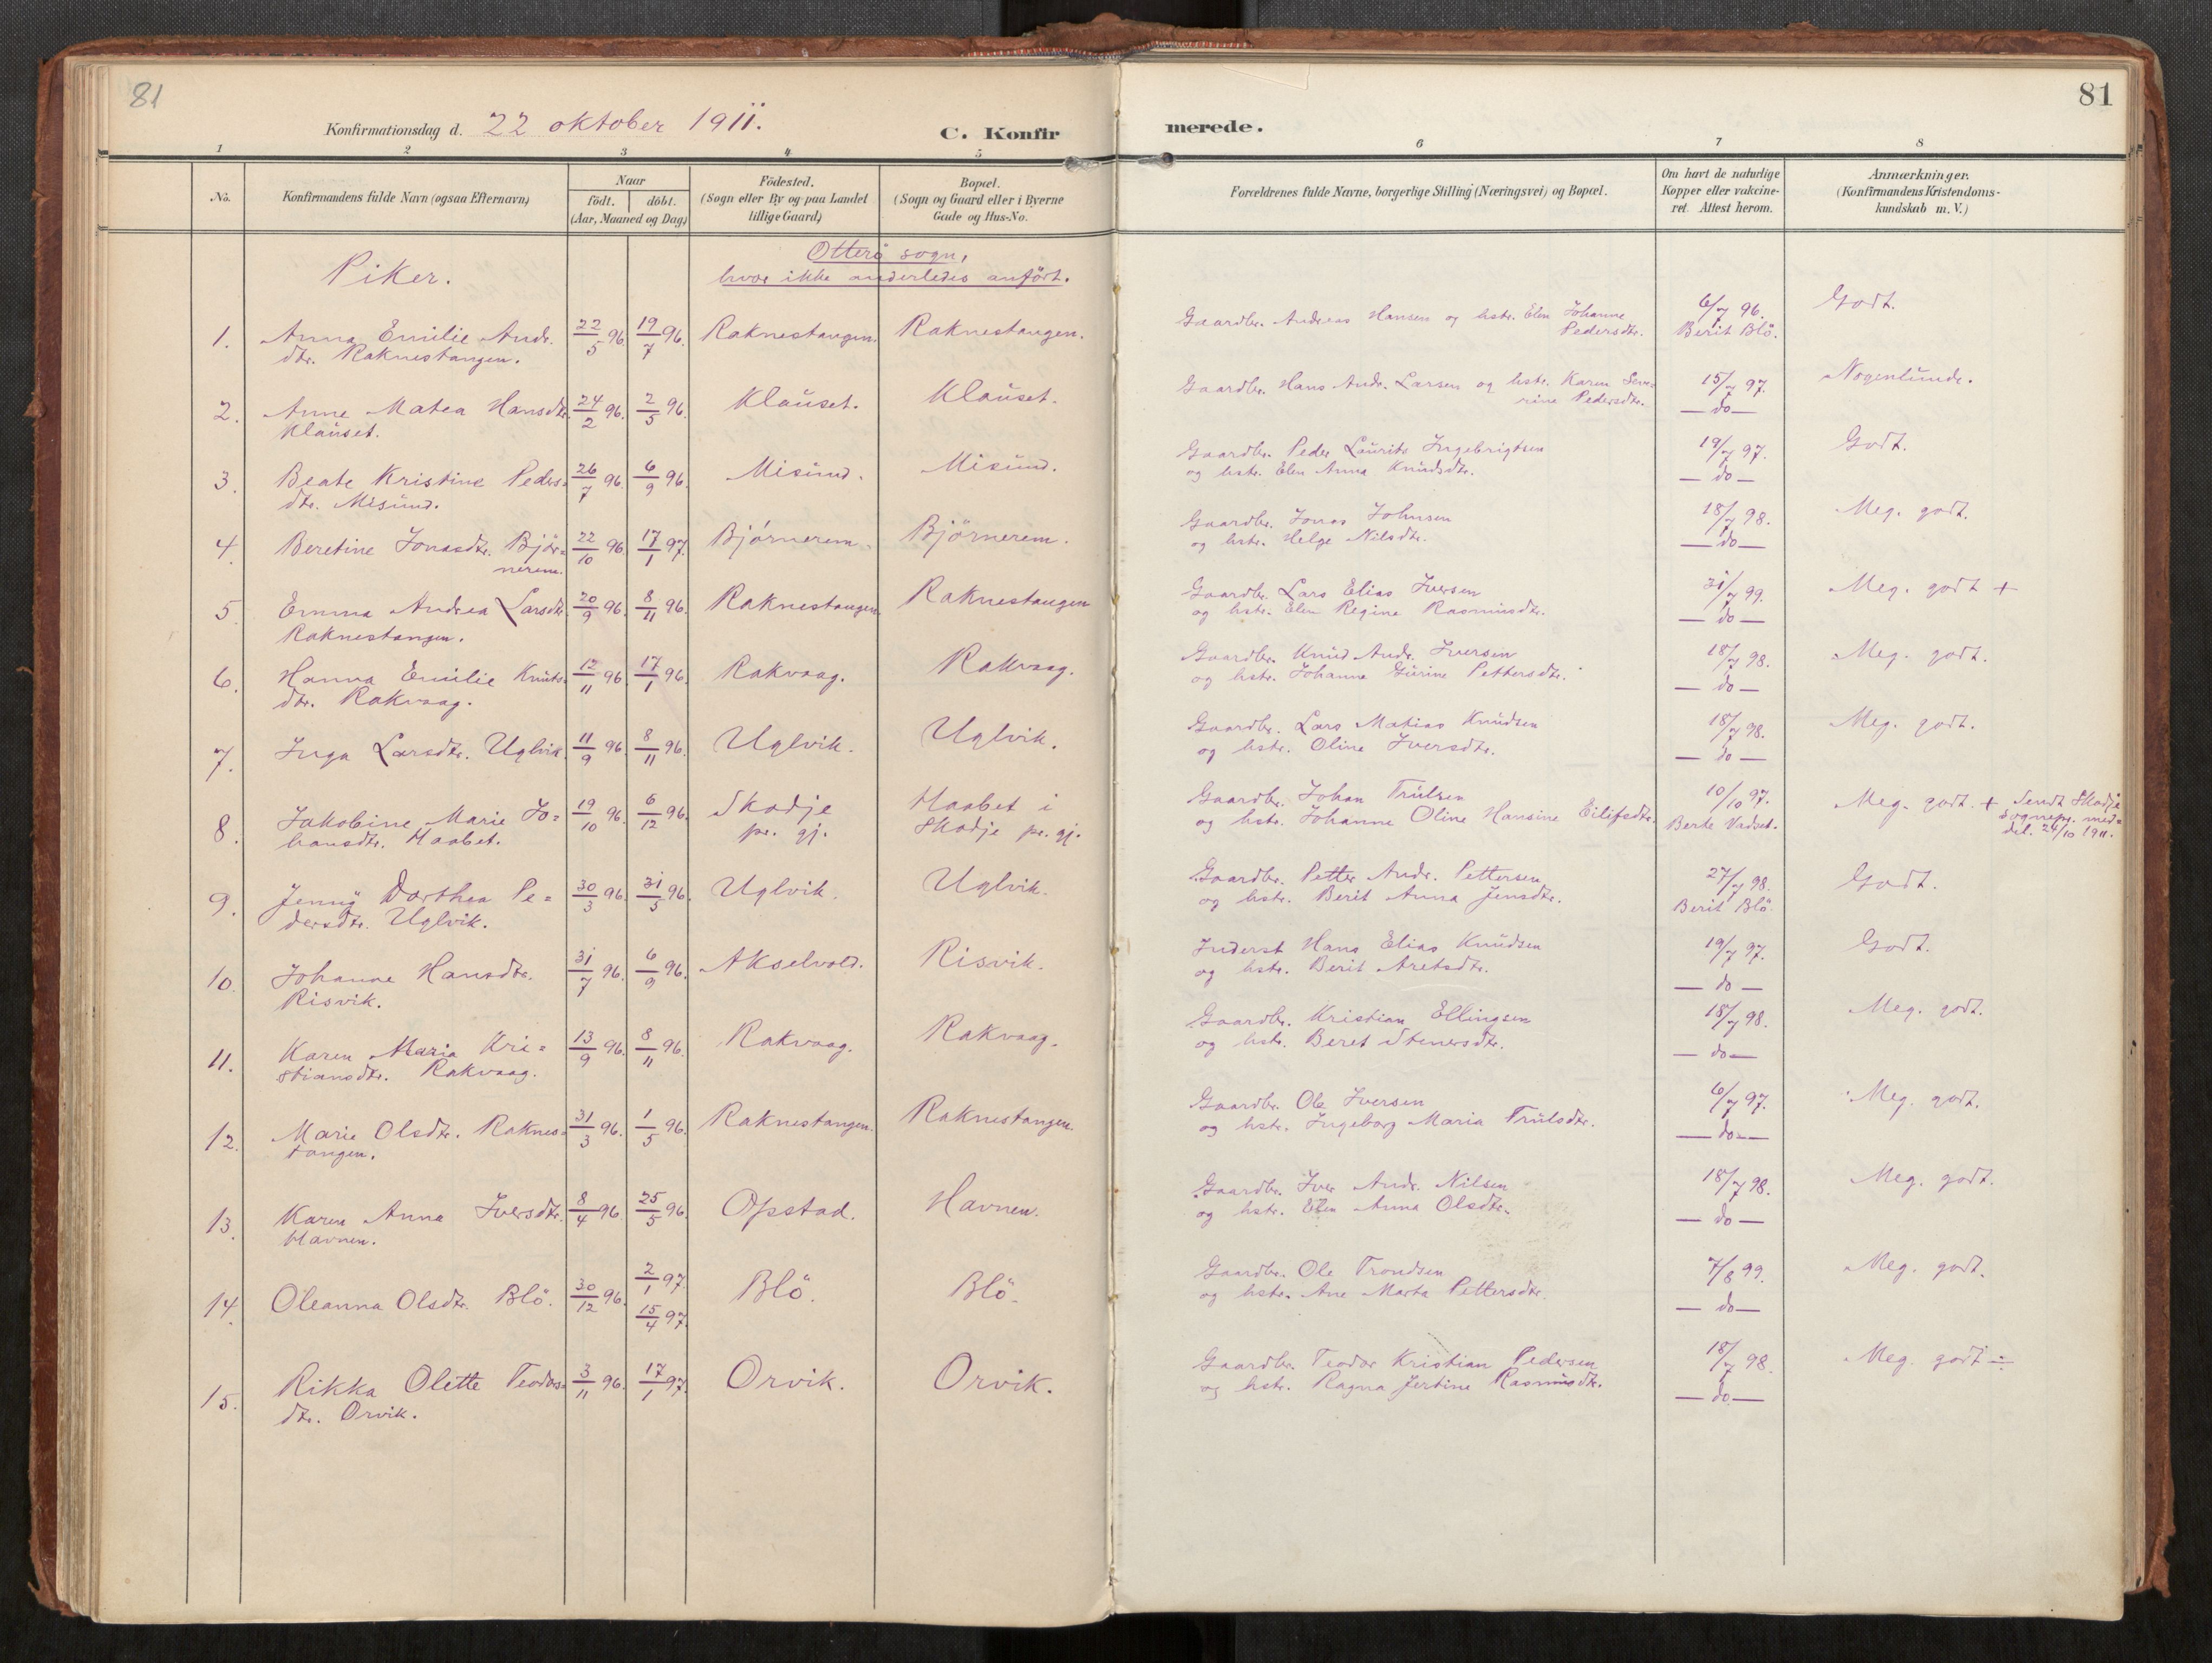 81
81
Konfirmationsdag d. 22 oktober 1911.
C. Konfir
merede.
1 2 3 4 5 6 7 8
No.
Konfirmandens fulde Navn (ogsaa Efternavn)
Naar
födt. döbt.
(Aar, Maaned og Dag)
Födested.
(Sogn eller By og paa Landet
tillige Gaard)
Bopæl.
(Sogn og Gaard eller i Byerne
Gade og Hus-No.
Forældrenes fulde Navne, borgerlige Stilling (Næringsvei) og Bopæl.
Om havt de naturlige
Kopper eller vaccine-
ret. Attest herom.
Anmærkninger.
(Konfirmandens Kristendoms-
kundskab m. V.)
Piker.
Otterö sogn,
hvor ikke anderledes anfört.
1. Anna Emilie Andr. 22/5 96. 19/7 96. Raknestangen. Raknestangen. Gaardbr. Andreas Hansen og hstr. Elen Johanne 6/7 96. Godt.
dtr. Raknestangen. Pedersdtr. Berit Blö.
2. Anne Matea Hansdtr. 24/2 96. 2/5 96. Klauset. Klauset. Gaardbr. Hans Andr. Larsen og hstr. Karen Seve= 15/7 97. Nogenlunde.
Klauset. rine Pedersdtr. — do —
3. Beate Kristine Peders= 26/7 96. 6/9 96. Misund. Misund. Gaardbr. Peder Laurits Ingebrigtsen 19/7 97. Godt.
dtr. Misund. og hstr. Elen Anna Knudsdtr. — do —
4. Beretine Jonasdtr. Björ= 22/10 96. 17/1 97. Björnerem. Björnerem. Gaardbr. Jonas Johnsen 18/7 98. Meg. godt.
nerem. og hstr. Helge Nilsdtr. — do —
5. Emma Andrea Larsdtr. 20/9 96. 8/11 96. Raknestangen. Raknestangen Gaardbr. Lars Elias Iversen 31/7 99. Meg. godt +
Raknestangen. og hstr. Elen Regine Rasmusdtr. — do —
6. Hanna Emilie Knuts= 12/11 96. 17/1 96. Rakvaag. Rakvaag. Gaardbr. Knud Andr. Iversen 18/7 98. Meg. godt.
dtr. Rakvaag. og hstr. Johanne Gurine Pettersdtr. — do —
7. Inga Larsdtr. Uglvik. 11/9 96. 8/11 96. Uglvik. Uglvik. Gaardbr. Lars Matias Knudsen 18/7 98. Meg. godt.
og hstr. Oline Iversdtr. — do —
8. Jakobine Marie Jo= 19/10 96. 6/12 96. Skodje Haabet i Gaardbr. Johan Trulsen 10/10 97. Meg. godt. + Sendt Skodje
hansdtr. Haabet. pr. gj. Skodje pr. gj. og hstr. Johanne Oline Hansine Eilifsdtr. Berte Vadset. sognepr. med=
del. 24/10 1911.
9. Jenny Dorthea Pe= 30/3 96. 31/5 96. Uglvik. Uglvik. Gaardbr. Petter Andr. Pettersen 27/7 98. Godt.
dersdtr. Uglvik. og hstr. Berit Anna Jensdtr. Berit Blö.
10. Johanne Hansdtr. 31/7 96. 6/9 96. Akselvold. Risvik. Inderst Hans Elias Knudsen 19/7 97. Godt.
Risvik. og hstr. Berit Aretsdtr. — do —
11. Karen Maria Kri= 13/9 96. 8/11 96. Rakvaag. Rakvaag. Gaardbr. Kristian Ellingsen 18/7 98. Meg. godt.
stiansdtr. Rakvaag. og hstr. Beret Stenersdtr. — do —
12. Marie Olsdtr. Raknes= 31/3 96. 1/5 96. Raknestangen. Raknestangen. Gaardbr. Ole Iversen 6/7 97. Meg. godt.
tangen. og hstr. Ingeborg Maria Trulsdtr. — do —
13. Karen Anna Iversdtr. 8/4 96. 25/5 96. Opstad. Havnen. Gaardbr. Iver Andr. Nilsen 18/7 98. Meg. godt.
Havnen. og hstr. Elen Anna Olsdtr. — do —
14. Oleanna Olsdtr. Blö. 30/12 96. 2/1 97. 15/4 97. Blö. Blö. Gaardbr. Ole Trondsen 7/8 99. Meg. godt.
og hstr. Ane Marta Pettersdtr. — do —
15. Rikka Olette Teodors= 3/11 96. 17/1 97. Orvik. Orvik. Gaardbr. Teodor Kristian Pedersen 18/7 98. Meg. godt ÷
dtr. Orvik. og hstr. Ragna Jertine Rasmusdtr. — do —